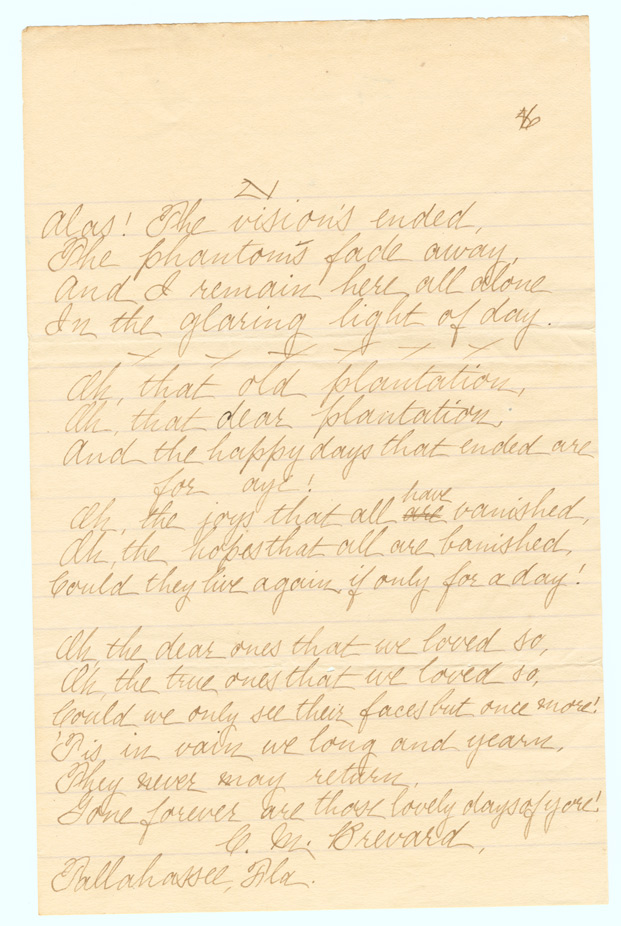 Alas! The vision's ended,
The phantoms fade away,
And I remain here all alone
In the glaring light of day.
Ah, that old plantation,
Ah, that dear plantation,
And the happy days that ended are
for aye!
Ah, the joys that all are have vanished,
Ah, the hopes that all are banished,
Could they live again, if only for a day!
Ah, the dear ones that we loved so,
Ah, the true ones that we loved so,
Could we only see their faces but once more!
'Tis in vain we long and yearn,
They never may return,
Gone forever are those lovely days of yore!
C. M. Brevard,
Tallahassee, Fla.